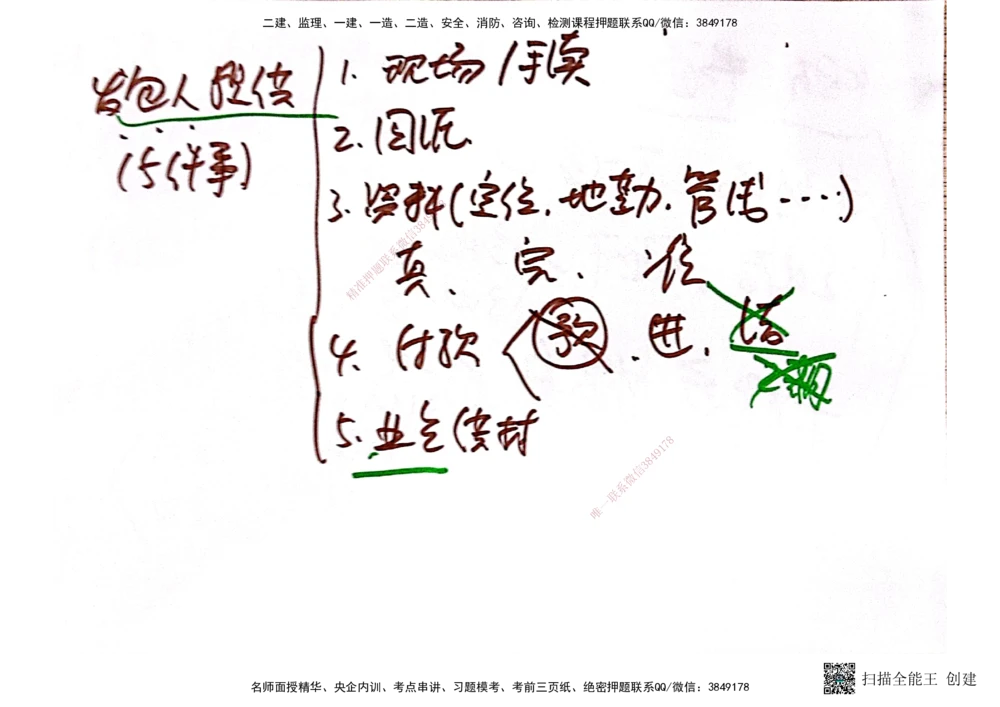 二建、监理、一建、一造、二造、安全、消防、咨询、检测课程押题联系QQ/微信：3849178
发包人提供
(5件事)
1. 现场/手续
2. 图纸
3. 资料(定位、地勘、管线····)
真、完、准
4. 付款 款、进、结
5. 业主供材
精准押题联系微信3849178
唯一联系微信3849178
名师面授精华、央企内训、考点串讲、习题模考、考前三页纸、绝密押题联系QQ/微信：3849178
扫描全能王 创建